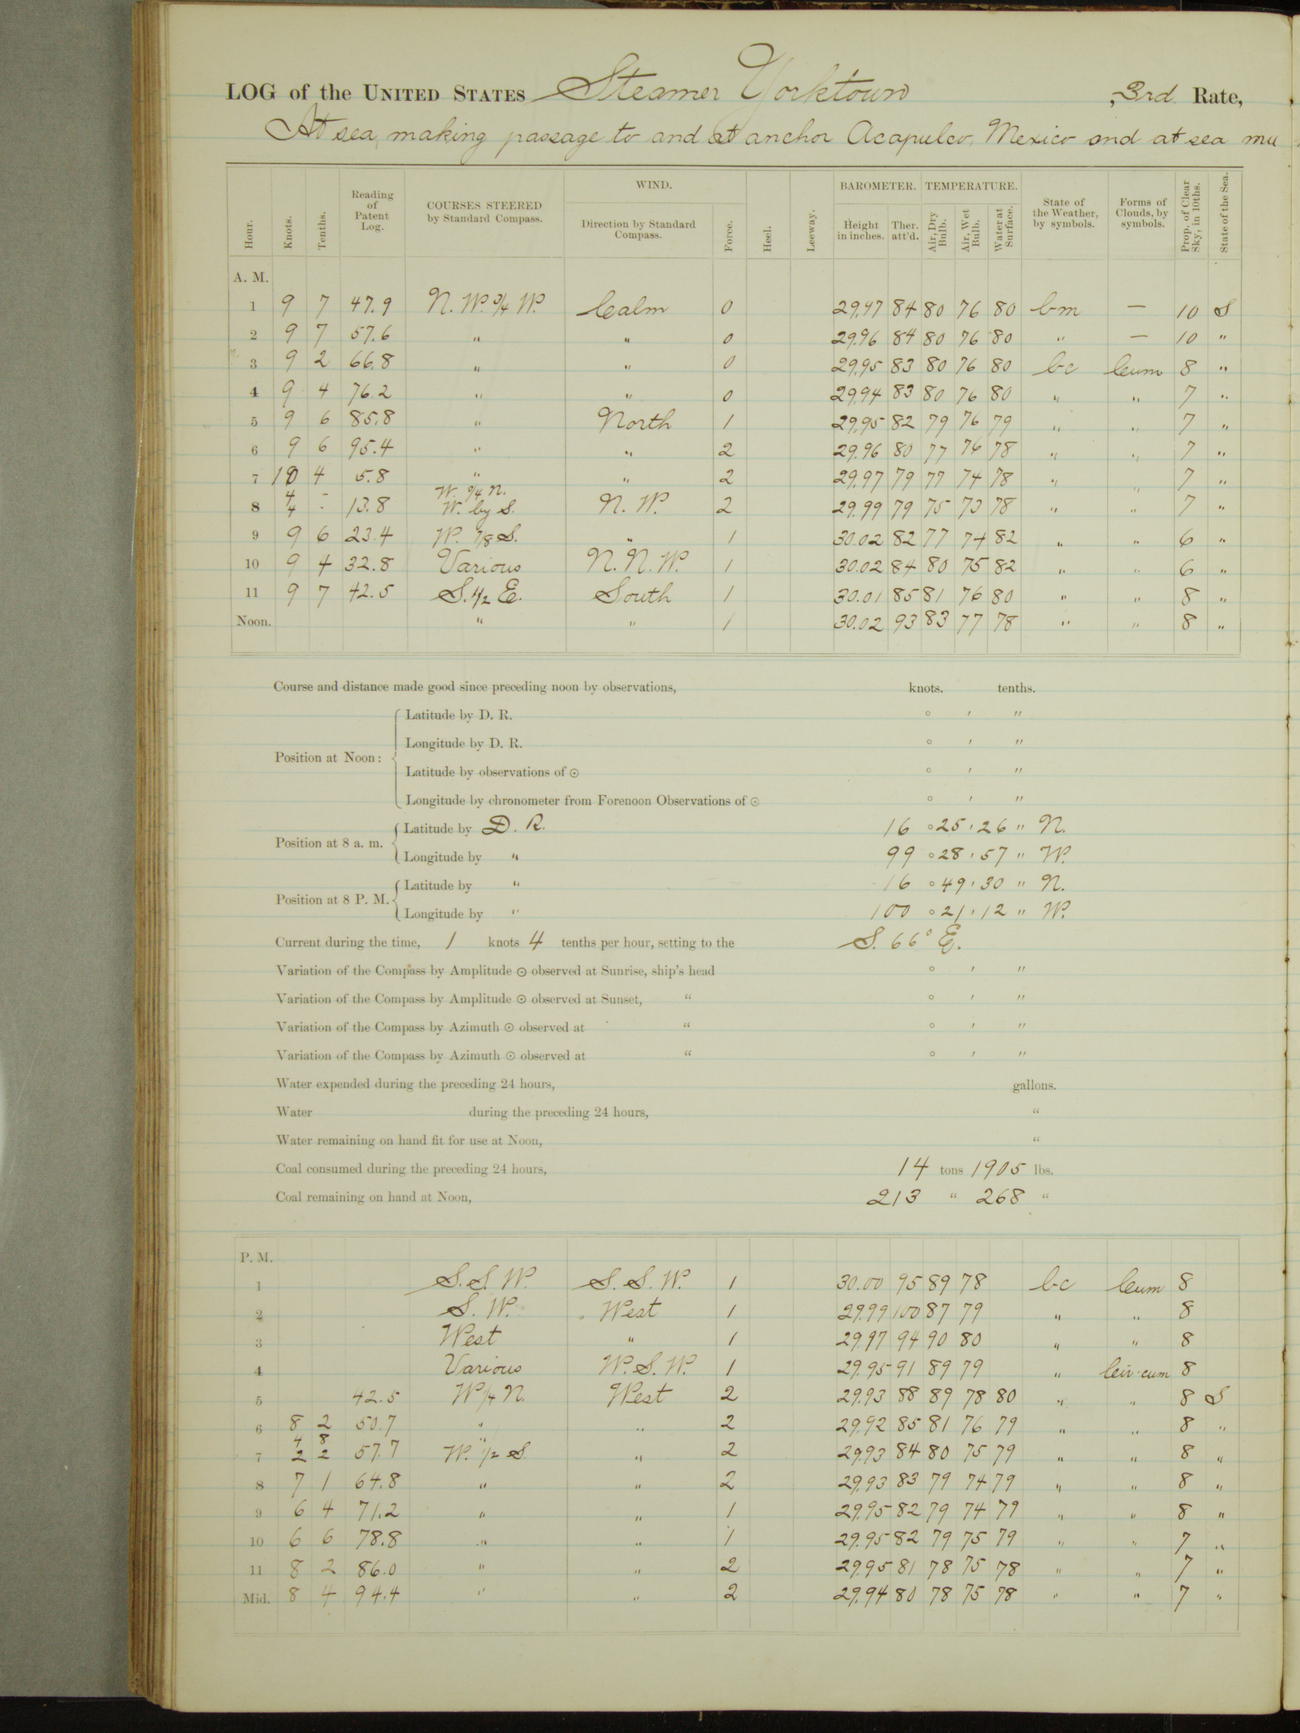 LOG of the UNITED STATES Steamer Yorktown, 3rd Rate,
At sea, making passage to and at anchor Acapulco, Mexico and at sea
Hour. Knots. Tenths. Reading of Patent Log. COURSES STEERED by Standard Compass. WIND. Direction by Standard Compass. Force. Heel. Leeway. BAROMETER. Height in inches. Ther. att'd. TEMPERATURE. Air, Dry Bulb. Air, Wet Bulb. Water at Surface. State of the Weather, by symbols. Forms of Clouds, by symbols. Prop. of Clear Sky, in 10ths. State of the Sea.
A. M.
1 9 7 47.9 N. W. 3/4 W. Calm 0 29.97 84 80 76 80 bm — 10 S
2 9 7 57.6 " " 0 29.96 84 80 76 80 " — 10 "
3 9 2 66.8 " " 0 29.95 83 80 76 80 bc Cum 8 "
4 9 4 76.2 " " 0 29.94 83 80 76 80 " " 7 "
5 9 6 85.8 " North 1 29.95 82 79 76 79 " " 7 "
6 9 6 95.4 " " 2 29.96 80 77 76 78 " " 7 "
7 10 4 5.8 " " 2 29.97 79 77 74 78 " " 7 "
4 - W. 3/4 N.
8 4 - 13.8 W. by S. N. W. 2 29.99 79 75 73 78 " " 7 "
9 9 6 23.4 W. 7/8 S. " 1 30.02 82 77 74 82 " " 6 "
10 9 4 32.8 Various N. N. W. 1 30.02 84 80 75 82 " " 6 "
11 9 7 42.5 S. 1/2 E. South 1 30.01 85 81 76 80 " " 8 "
Noon. " " 1 30.02 93 83 77 78 " " 8 "
Course and distance made good since preceding noon by observations, knots. tenths.
Latitude by D. R. ° ' "
Longitude by D. R. ° ' "
Position at Noon:
Latitude by observations of ☉ ° ' "
Longitude by chronometer from Forenoon Observations of ☉ ° ' "
Latitude by D. R. 16 ° 25 ' 26 " N.
Position at 8 a. m.
Longitude by " 99 ° 28 ' 57 " W.
Latitude by " 16 ° 49 ' 30 " N.
Position at 8 P. M.
Longitude by " 100 ° 21 ' 12 " W.
Current during the time, 1 knots 4 tenths per hour, setting to the S. 66° E.
Variation of the Compass by Amplitude ☉ observed at Sunrise, ship's head ° ' "
Variation of the Compass by Amplitude ☉ observed at Sunset, " ° ' "
Variation of the Compass by Azimuth ☉ observed at " ° ' "
Variation of the Compass by Azimuth ☉ observed at " ° ' "
Water expended during the preceding 24 hours, gallons.
Water during the preceding 24 hours, "
Water remaining on hand fit for use at Noon, "
Coal consumed during the preceding 24 hours, 14 tons 1905 lbs.
Coal remaining on hand at Noon, 213 " 268 "
P. M.
1 S. S. W. S. S. W. 1 30.00 95 89 78 bc Cum 8
2 S. W. West 1 29.99 100 87 79 " " 8
3 West " 1 29.97 94 90 80 " " 8
4 Various W. S. W. 1 29.95 91 89 79 " Cir-cum 8
5 42.5 W 1/4 N. West 2 29.93 88 89 78 80 " " 8 S
6 8 2 50.7 " " 2 29.92 85 81 76 79 " " 8 "
4 8 "
7 2 2 57.7 W. 1/2 S. " 2 29.93 84 80 75 79 " " 8 "
8 7 1 64.8 " " 2 29.93 83 79 74 79 " " 8 "
9 6 4 71.2 " " 1 29.95 82 79 74 79 " " 8 "
10 6 6 78.8 " " 1 29.95 82 79 75 79 " " 7 "
11 8 2 86.0 " " 2 29.95 81 78 75 78 " " 7 "
Mid. 8 4 94.4 " " 2 29.94 80 78 75 78 " " 7 "